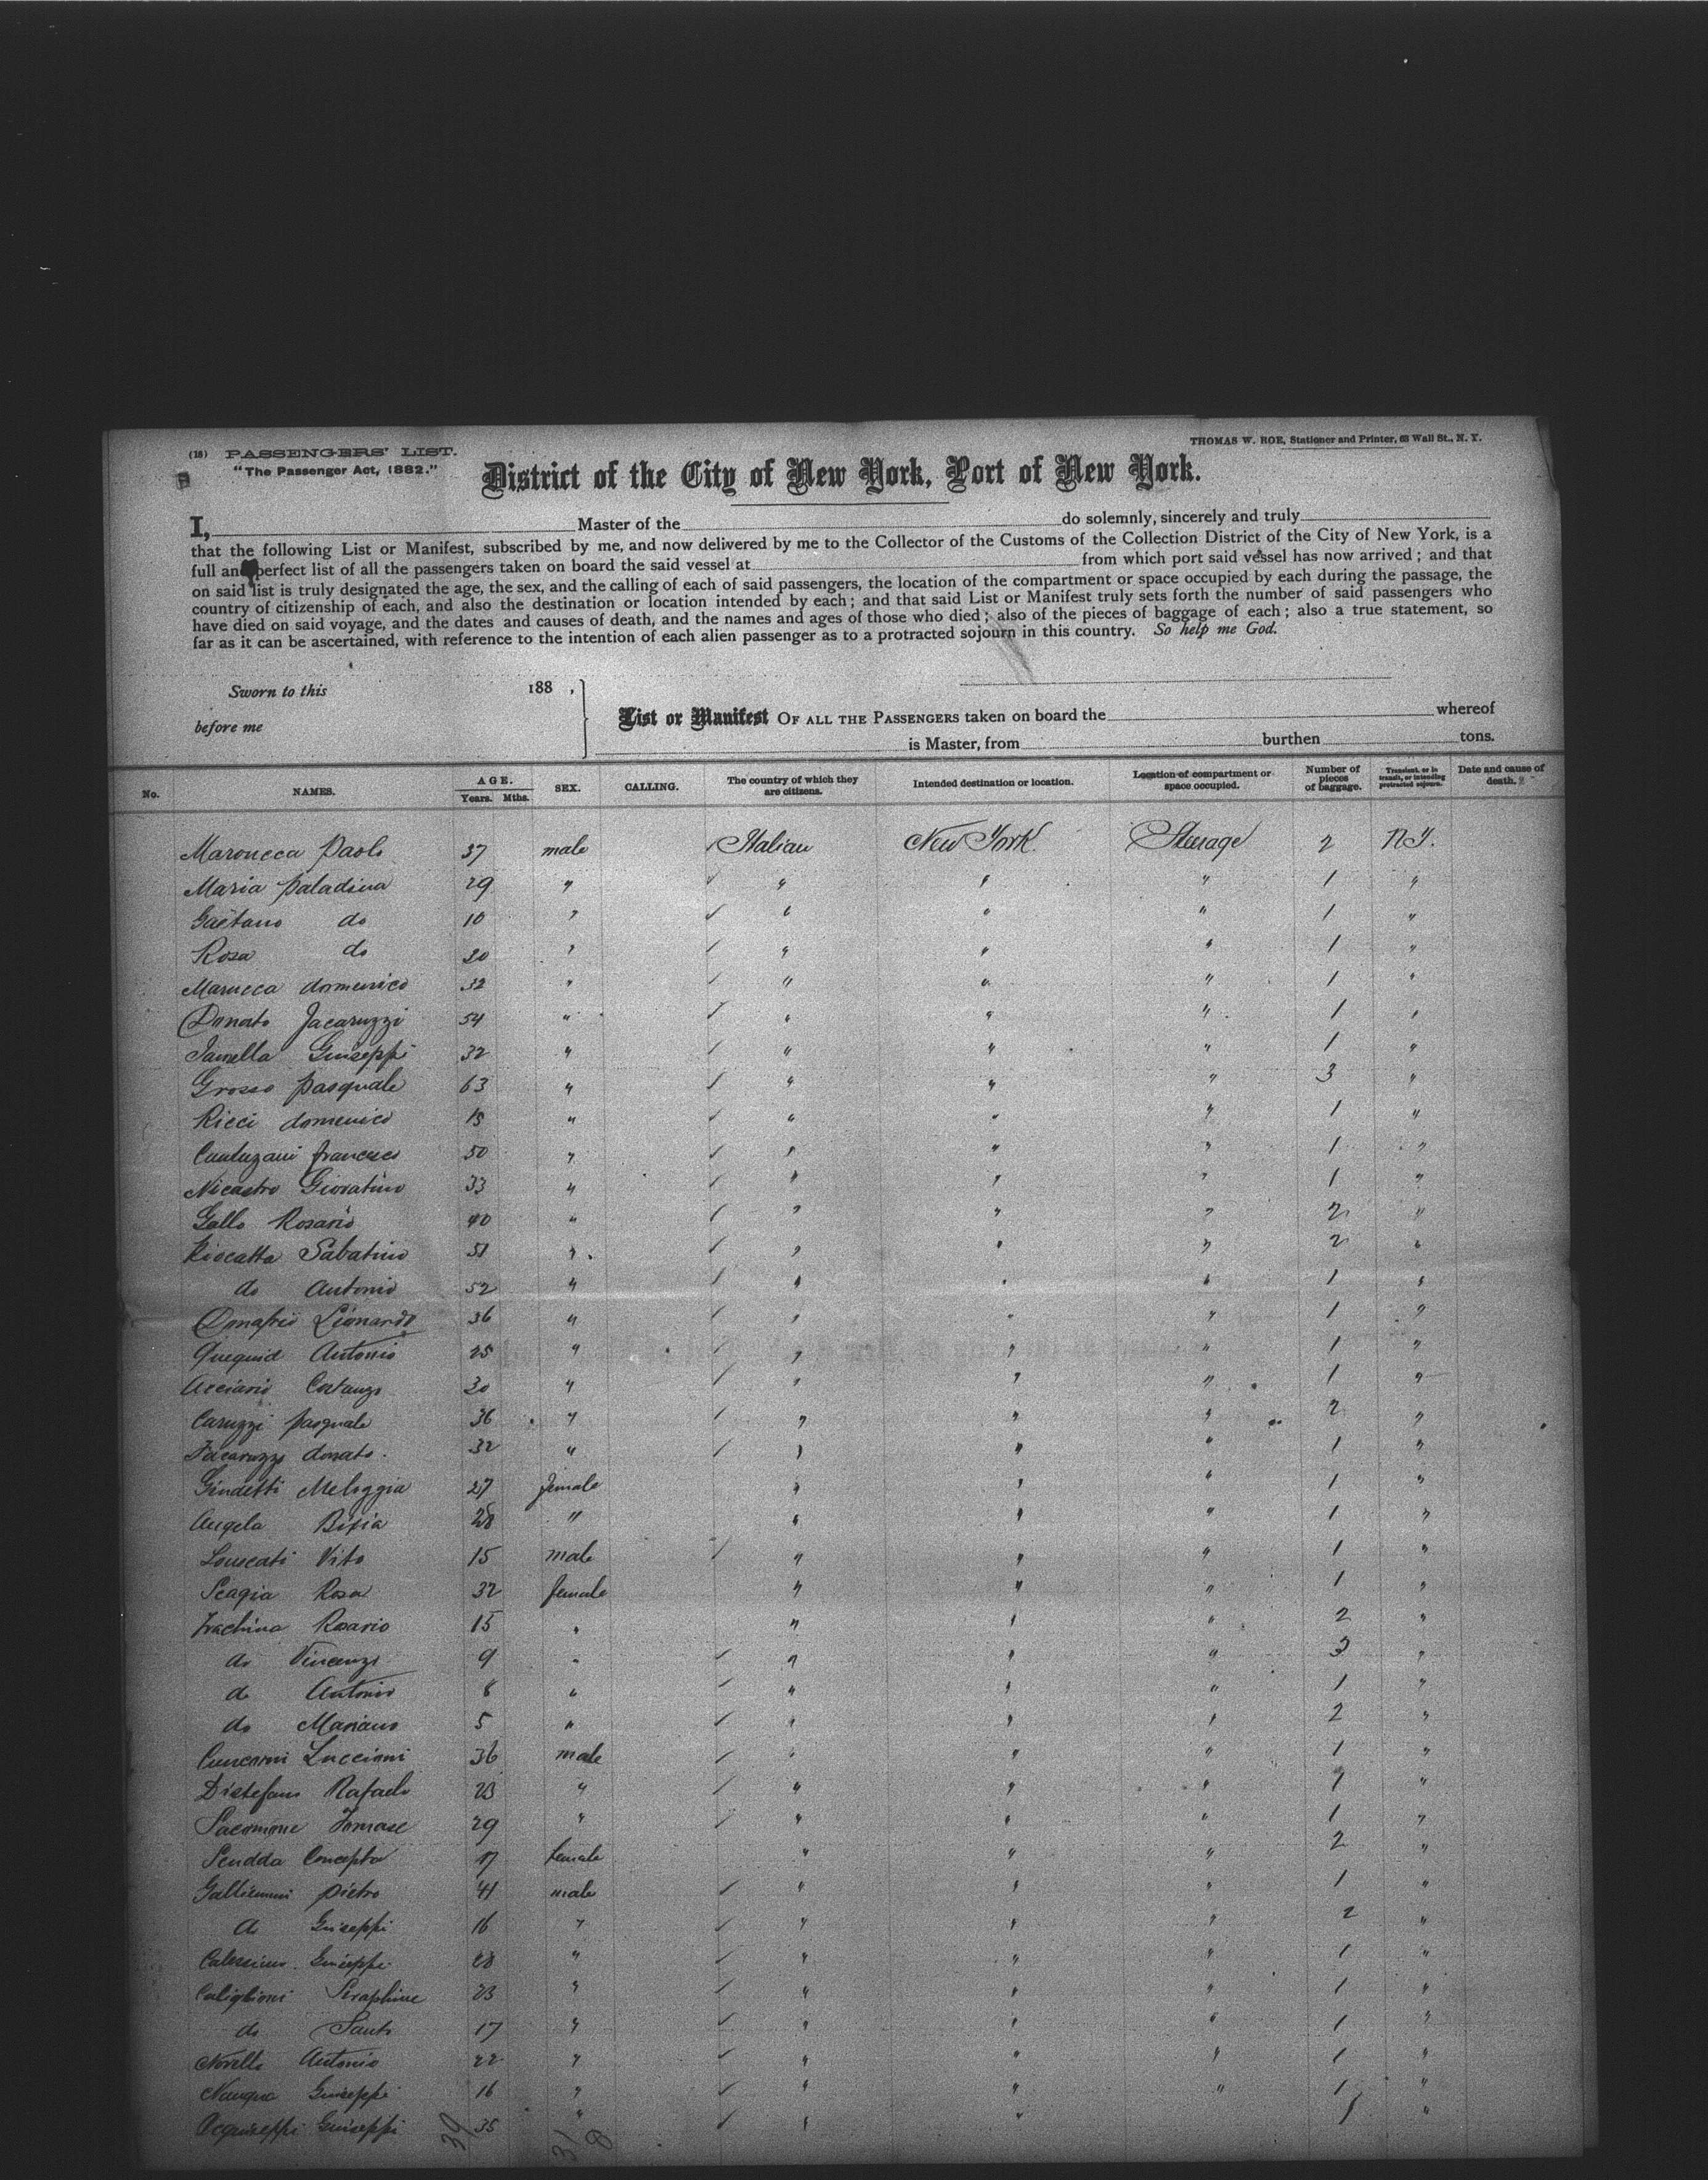 (18) PASSENGERS' LIST.
"The Passenger Act, 1882."
THOMAS W. ROE, Stationer and Printer, 63 Wall St., N. Y.
District of the City of New York, Port of New York.
I, Master of the do solemnly, sincerely and truly
that the following List or Manifest, subscribed by me, and now delivered by me to the Collector of the Customs of the Collection District of the City of New York, is a
full and perfect list of all the passengers taken on board the said vessel at from which port said vessel has now arrived; and that
on said list is truly designated the age, the sex, and the calling of each of said passengers, the location of the compartment or space occupied by each during the passage, the
country of citizenship of each, and also the destination or location intended by each; and that said List or Manifest truly sets forth the number of said passengers who
have died on said voyage, and the dates and causes of death, and the names and ages of those who died; also of the pieces of baggage of each; also a true statement, so
far as it can be ascertained, with reference to the intention of each alien passenger as to a protracted sojourn in this country. So help me God.
Sworn to this 188 ,
before me
List or Manifest OF ALL THE PASSENGERS taken on board the whereof
is Master, from burthen tons.
No. NAMES. AGE. Years. Mths. SEX. CALLING. The country of which they are citizens. Intended destination or location. Location of compartment or space occupied. Number of pieces of baggage. Transient, or in transit, or intending protracted sojourn. Date and cause of death.
Maroucca Paolo 37 male Italian New York Steerage 2 N.Y.
Maria Paladina 29 " " " " 1 "
Gaetano do 10 " " " " 1 "
Rosa do 20 " " " " 1 "
Marucca domenico 32 " " " " 1 "
Donato Jacaruzzi 54 " " " " 1 "
Guiseppi 32 " " " " 1 "
Grosso Pasquale 63 " " " " 3 "
Ricci domenico 15 " " " " 1 "
francesco 50 " " " " 1 "
Nicastro Giovatino 33 " " " " 1 "
Gallo Rosario 40 " " " " 2 "
Sabatino 51 " " " " 2 "
do Antonio 52 " " " " 1 "
Donafrio Lionardo 36 " " " " 1 "
Antonio 25 " " " " 1 "
Acciario Costanzo 30 " " " " 1 "
Caruzzi Pasquale 36 " " " " 2 "
Jacaruzzi donato. 32 " " " " 1 "
Meloggia 27 female " " " 1 "
Angela 28 " " " " 1 "
Vito 15 male " " " 1 "
Scagia Rosa 32 female " " " 1 "
Rosario 15 " " " " 2 "
do Vincenzo 9 " " " " 3 "
do Antonio 8 " " " " 1 "
do Mariano 5 " " " " 2 "
Luccioni 36 male " " " 1 "
Distefano Rafaelo 23 " " " " 1 "
Sacomone Tomase 29 " " " " 1 "
Scudda Concepta 17 female " " " 2 "
Pietro 41 male " " " 1 "
do Guiseppi 16 " " " " 2 "
Guiseppi 28 " " " " 1 "
Caliglioni Seraphine 23 " " " " 1 "
do Santo 17 " " " " 1 "
Novello Antonio 22 " " " " 1 "
Guiseppi 16 " " " " 1 "
Guiseppi 35 " " " " 1 "
39 31 8